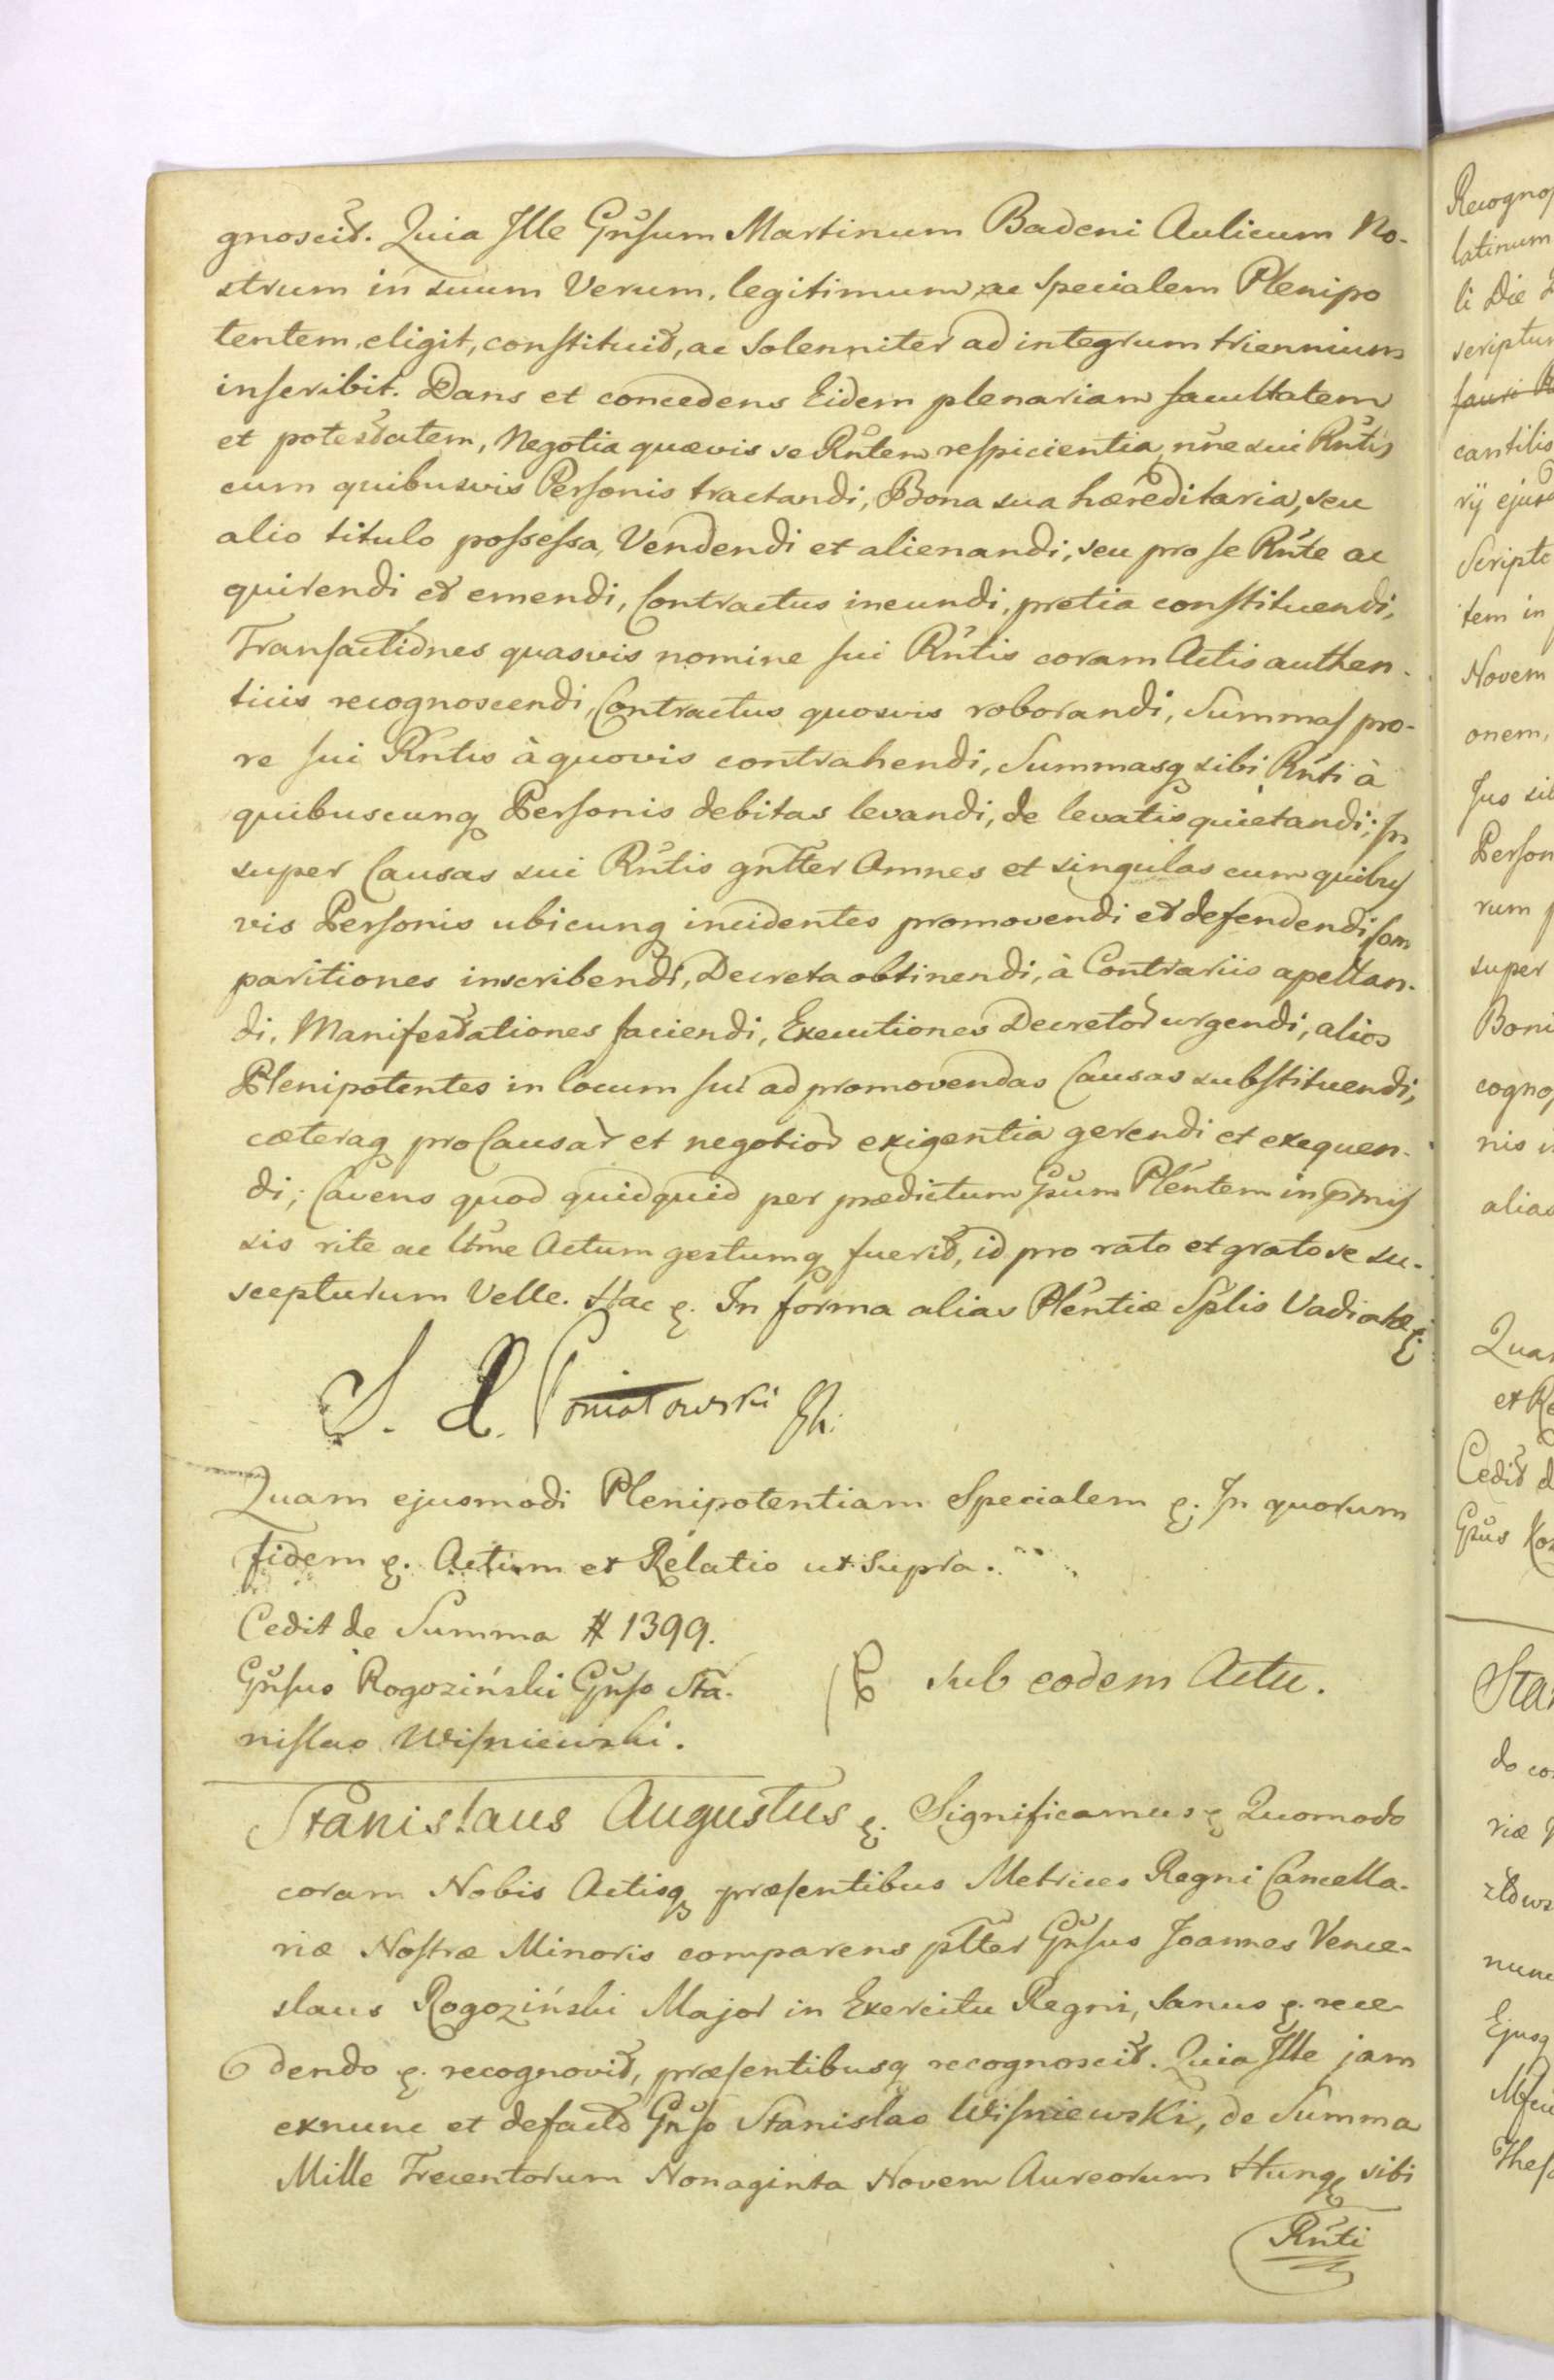 gnoscit. Quia Ille Gnsum Martinum Badeni Aulicum No-
strum in suum Verum, legitimum ac specialem Plenipo
tentem, eligit, constituit, ac solenniter ad integrum triennium
inscribit. Dans et concedens Eidem plenariam facultatem
et potestatem, Negotia quævis se Rntem respicientia nne sui Rntis
cum quibusvis Personis tractandi, Bona sua hæreditaria, seu
alio titulo possessa, Vendendi et alienandi, seu pro se Rnte ac
quirendi et emendi, Contractus ineundi, pretia constituendi,
Transactiones quasvis nomine sui Rntis coram Actis authen-
ticis recognoscendi, Contractus quosvis roborandi, Summas pro-
re sui Rntis à quovis contrahendi, Summasq sibi Rnti à
quibuscunq Personis debitas levandi, de levatis quietandi; In
super Causas sui Rntis gntter Omnes et singulas cum quibus
vis Personis ubicunq incidentes promovendi et defendendi Com
paritiones inscribendi, Decreta obtinendi, à Contrariis apellan-
di, Manifestationes faciendi, Executiones Decretor urgendi, alios
Plenipotentes in locum sui ad promovendas Causas substituendi,
cæteraq pro Causar et negotior exigentia gerendi et exequen-
di; Cavens quod quidquid per prædictum Gsum Plentem in pmis
sis rite ac ltme Actum gestumq fuerit, id pro rato et grato se su-
scepturum Velle. Hac &. In forma alias Plentiæ Splis Vadiatæ &.
S. A. Poniatowski
Quam ejusmodi Plenipotentiam Specialem &. In quorum
fidem &. Actum et Relatio ut supra.
Cedit de Summa # 1399.
Gnsus Rogoziński Gnso Sta-
nislao Wisniewski.
sub eodem Actu.
Stanislaus Augustus &. Significamus & Quomodo
coram Nobis Actisq præsentibus Metrices Regni Cancella-
riæ Nostræ Minoris comparens ptter Gnsus Joannes Vence-
slaus Rogoziński Major in Exercitu Regni, sanus &. rece-
dendo &. recognovit, præsentibusq recognoscit. Quia Ille jam
exnunc et defacto Gnso Stanislao Wisniewski, de Summa
Mille Trecentorum Nonaginta Novem Aureorum Hung sibi
Rnti
Recognos
latinum
li Die
scriptum
cantilis
rij ejusd
Scripto
tem in
Novem
onem,
Jus sib
Person
rum
super
Boni
cognos
nis
alias
Quam
et Re
Cedit d
Gsus Koz
Stan
do co
riæ
nunc
Ejusq
Thes